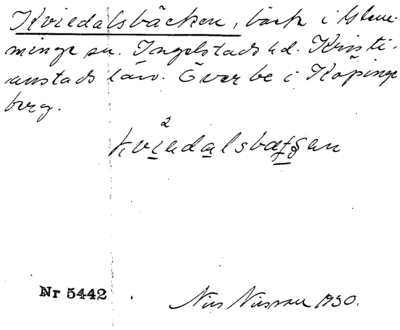 Kviedalsbäcken, bäck i Glem-
minge sn. Ingelstads hd. Kristi-
anstads län. Över be i Köpinge
berg.
2
Nr 5442
Nils Nilsson 1930.